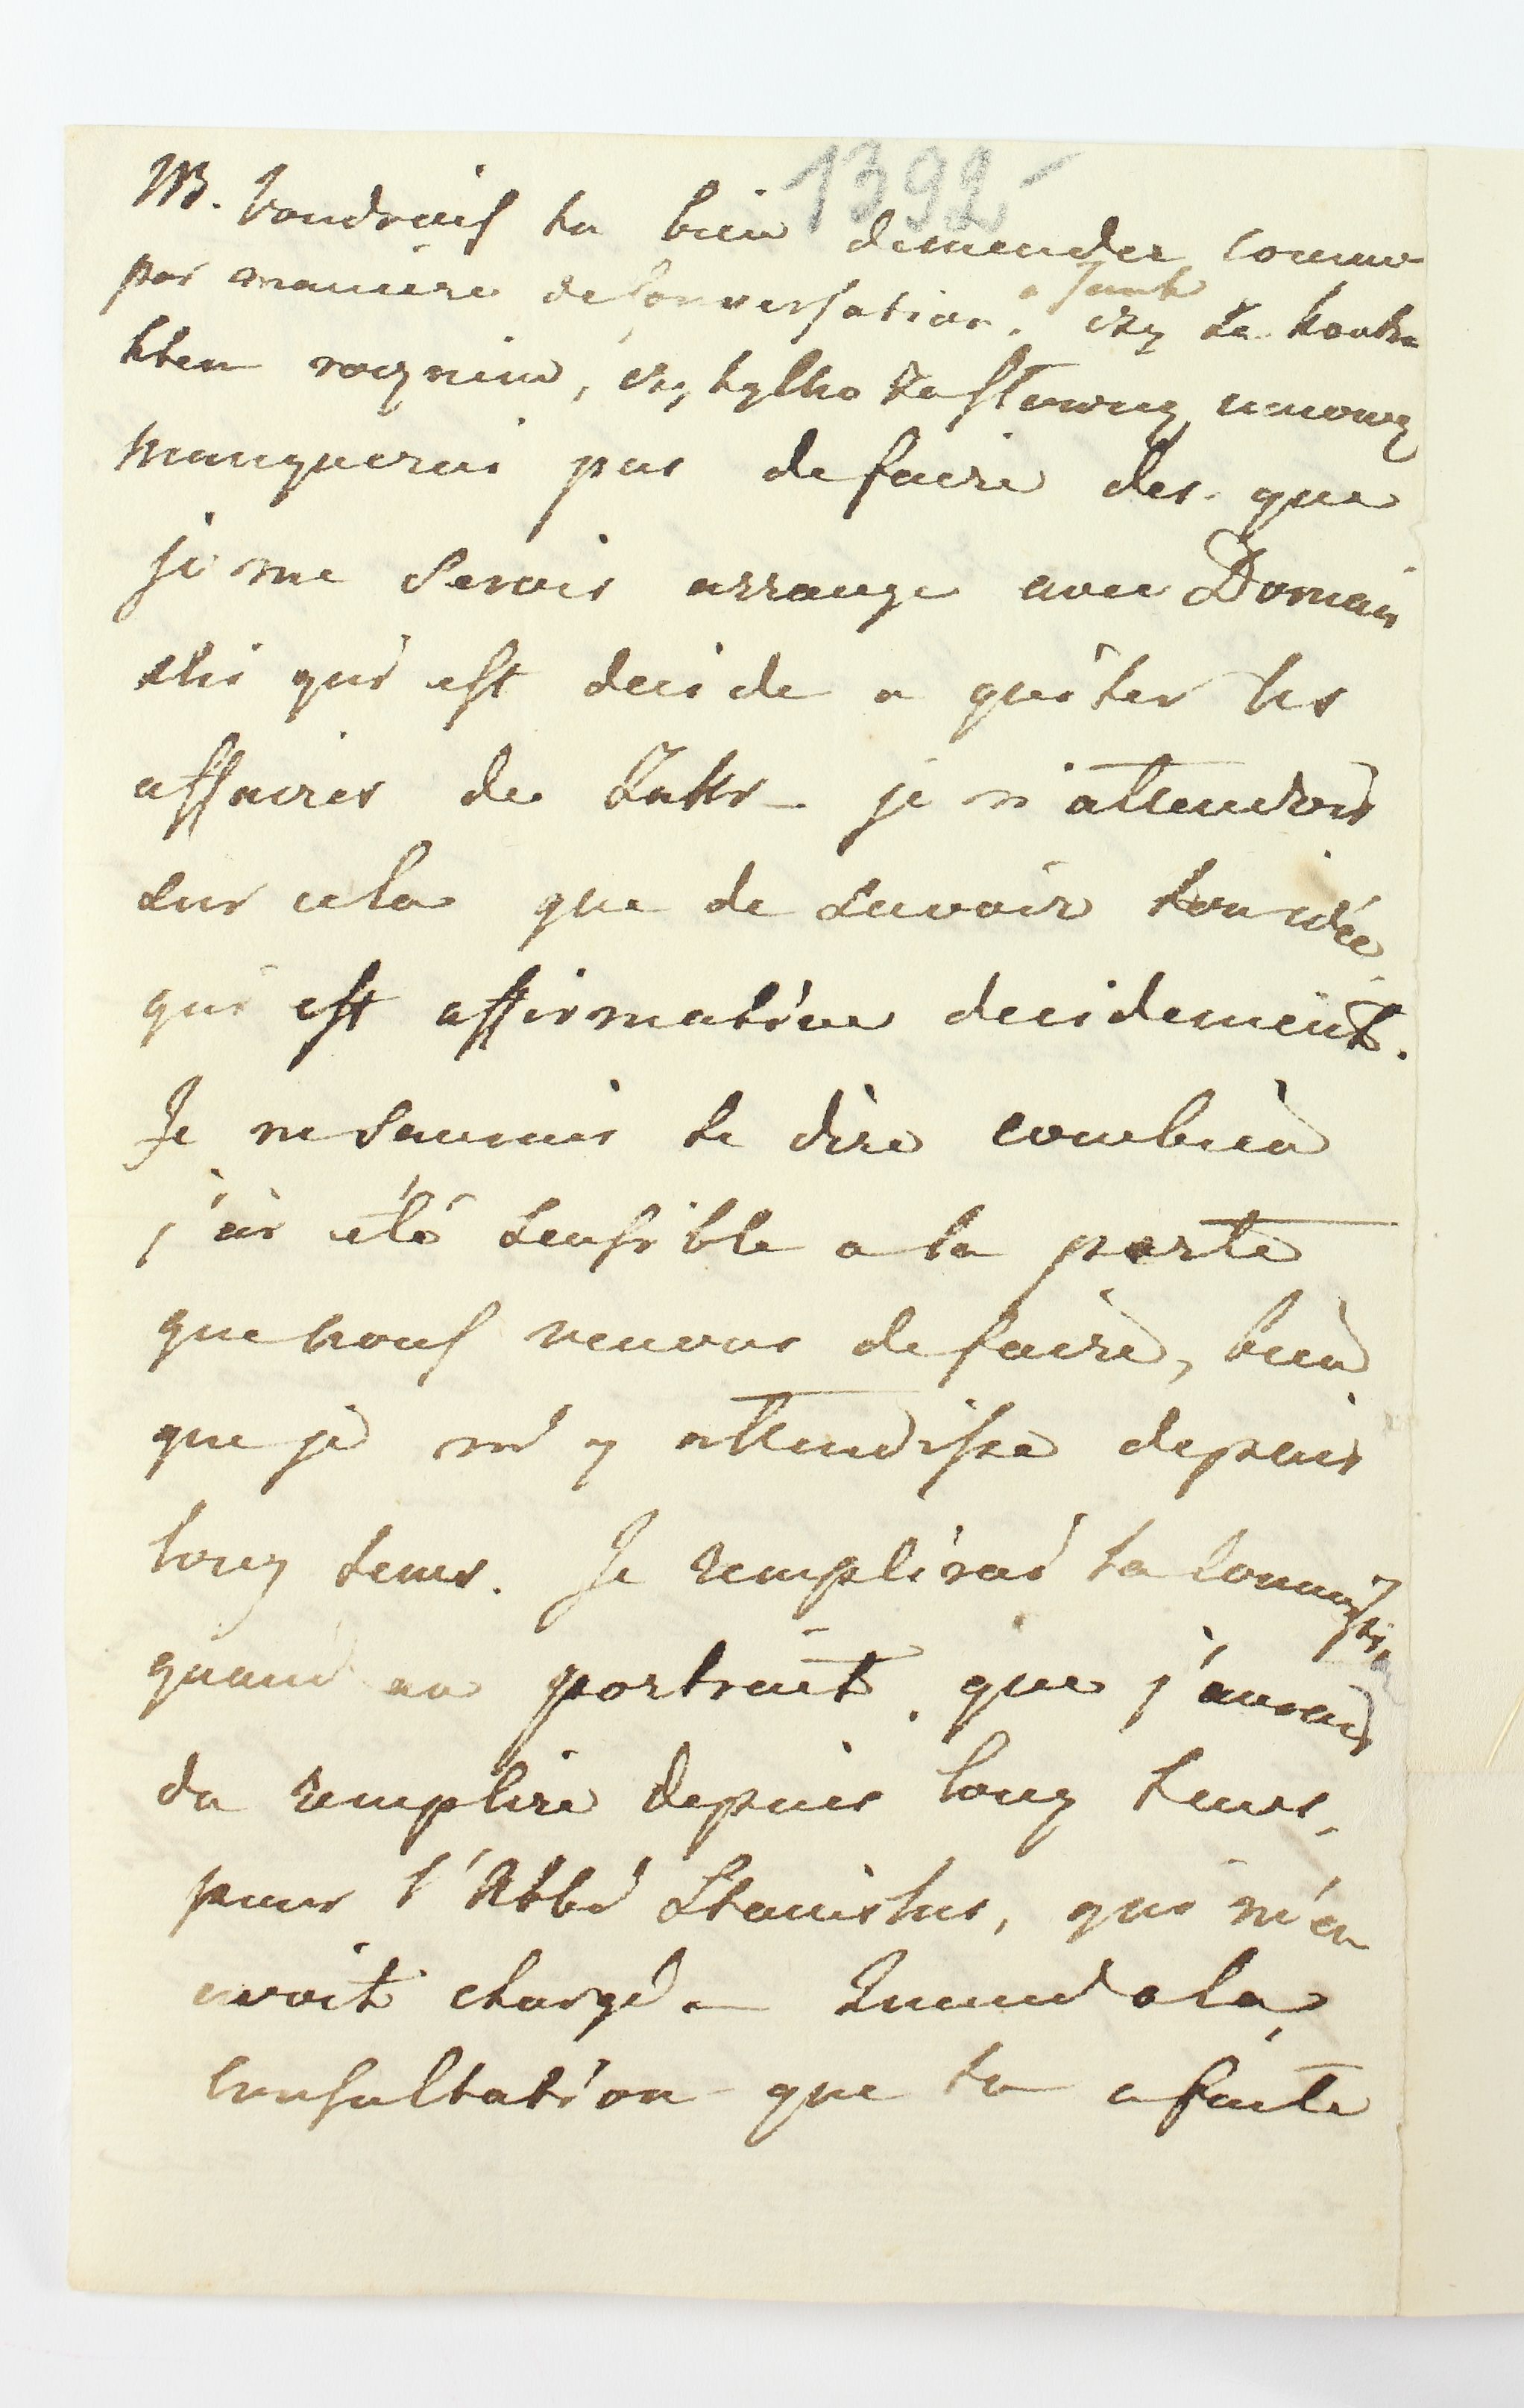 1392
NB. Voudrais tu bien demender comme
par maniere de conversation. a Tonk
czy za kontra
ktem rocznim, czy tylko za słowną umową
manquerai pas de faire des que
je me serois arrange avec Domain
ski qui est decide a quiter les
affaires de Zakr – je n'attendois
sur cela que de savoir ton idée
qui est affirmative decidement.
Je ne saurais te dire combien
j'ai été sensible a la perte
que nous venons de faire, bien
que je m'y attendisse depuis
long tems. Je remplirai ta commission
quand au portrait. que j'aurais
du remplire depuis long tems,
pour l'Abbé Stanislas, qui m'en
avoit chargé – Quand a la
consultation que tu a faite